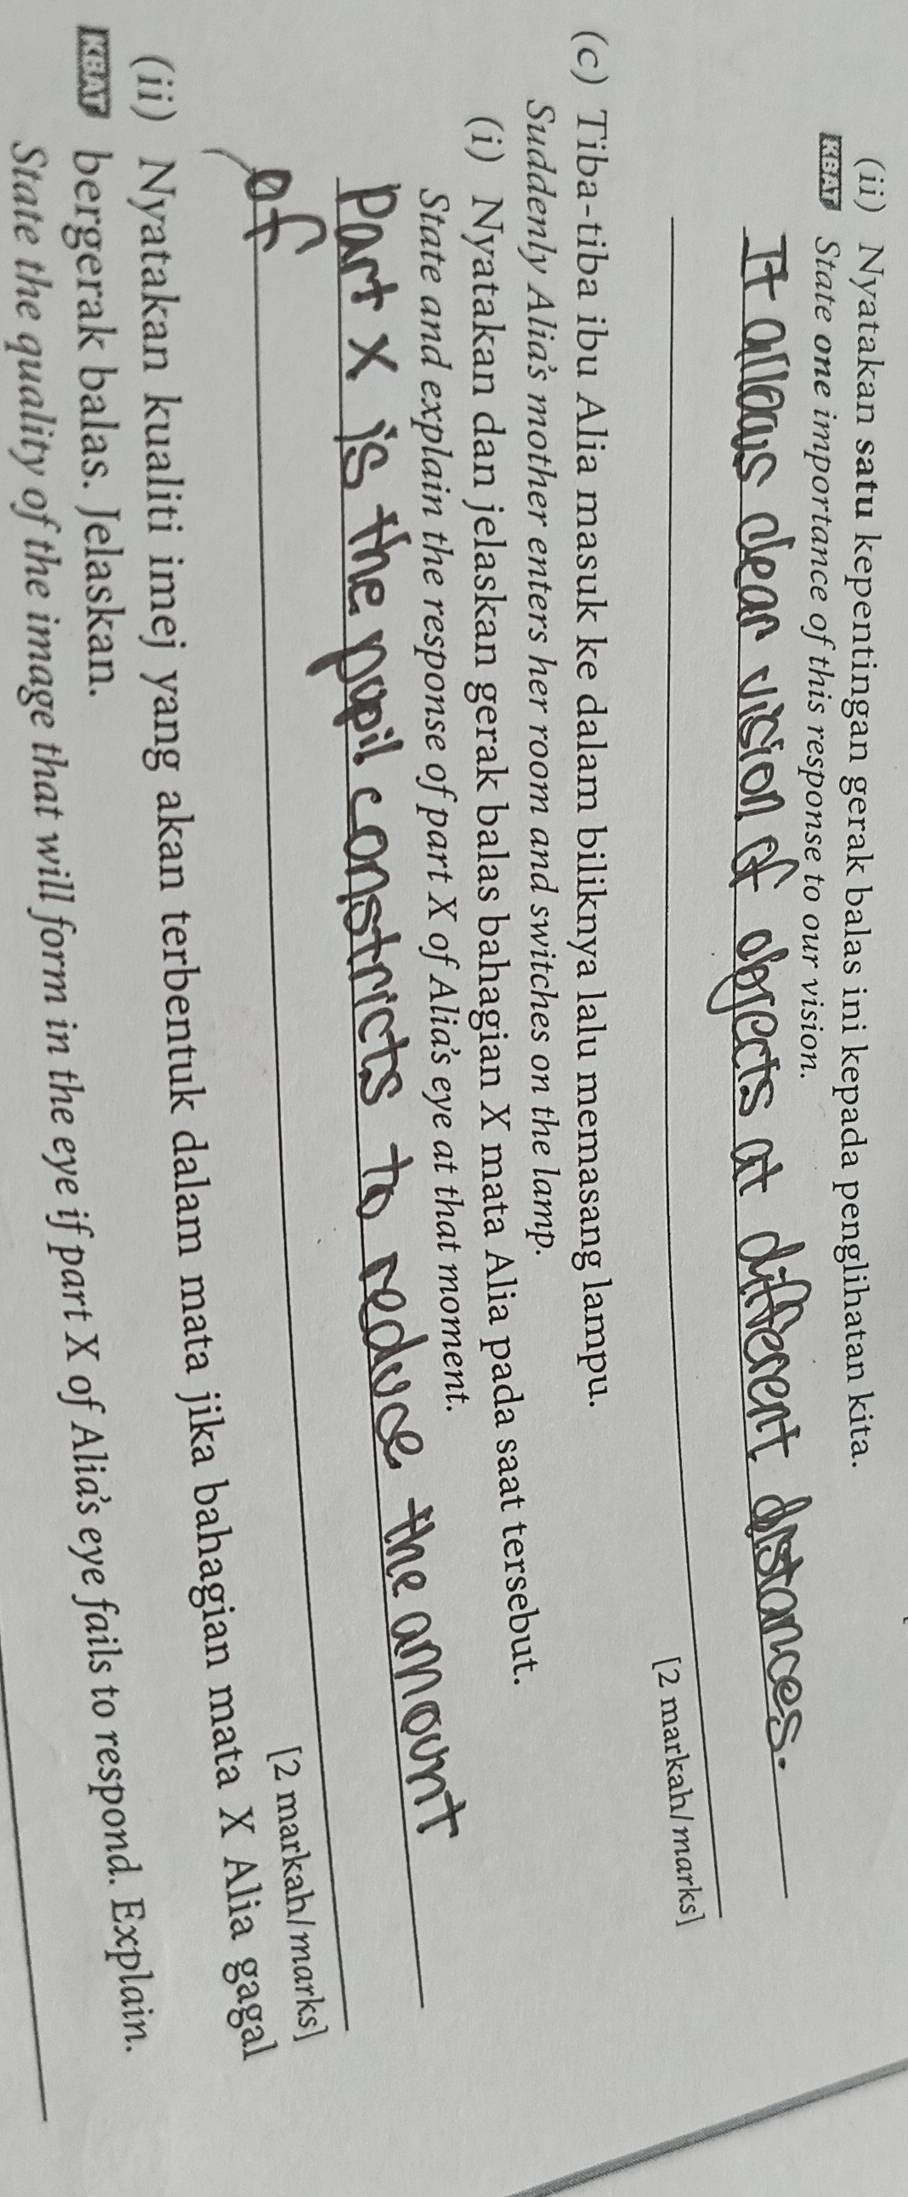 (ii) Nyatakan satu kepentingan gerak balas ini kepada penglihatan kita.
KBAT State one importance of this response to our vision.
It allows clear vision of objects at different distances.
[2 markah/marks]
(c) Tiba-tiba ibu Alia masuk ke dalam biliknya lalu memasang lampu.
Suddenly Alia's mother enters her room and switches on the lamp.
(i) Nyatakan dan jelaskan gerak balas bahagian X mata Alia pada saat tersebut.
State and explain the response of part X of Alia's eye at that moment.
part X is the pupil constricts to reduce the amount
of
[2 markah/marks]
(ii) Nyatakan kualiti imej yang akan terbentuk dalam mata jika bahagian mata X Alia gagal
KBAT bergerak balas. Jelaskan.
State the quality of the image that will form in the eye if part X of Alia's eye fails to respond. Explain.